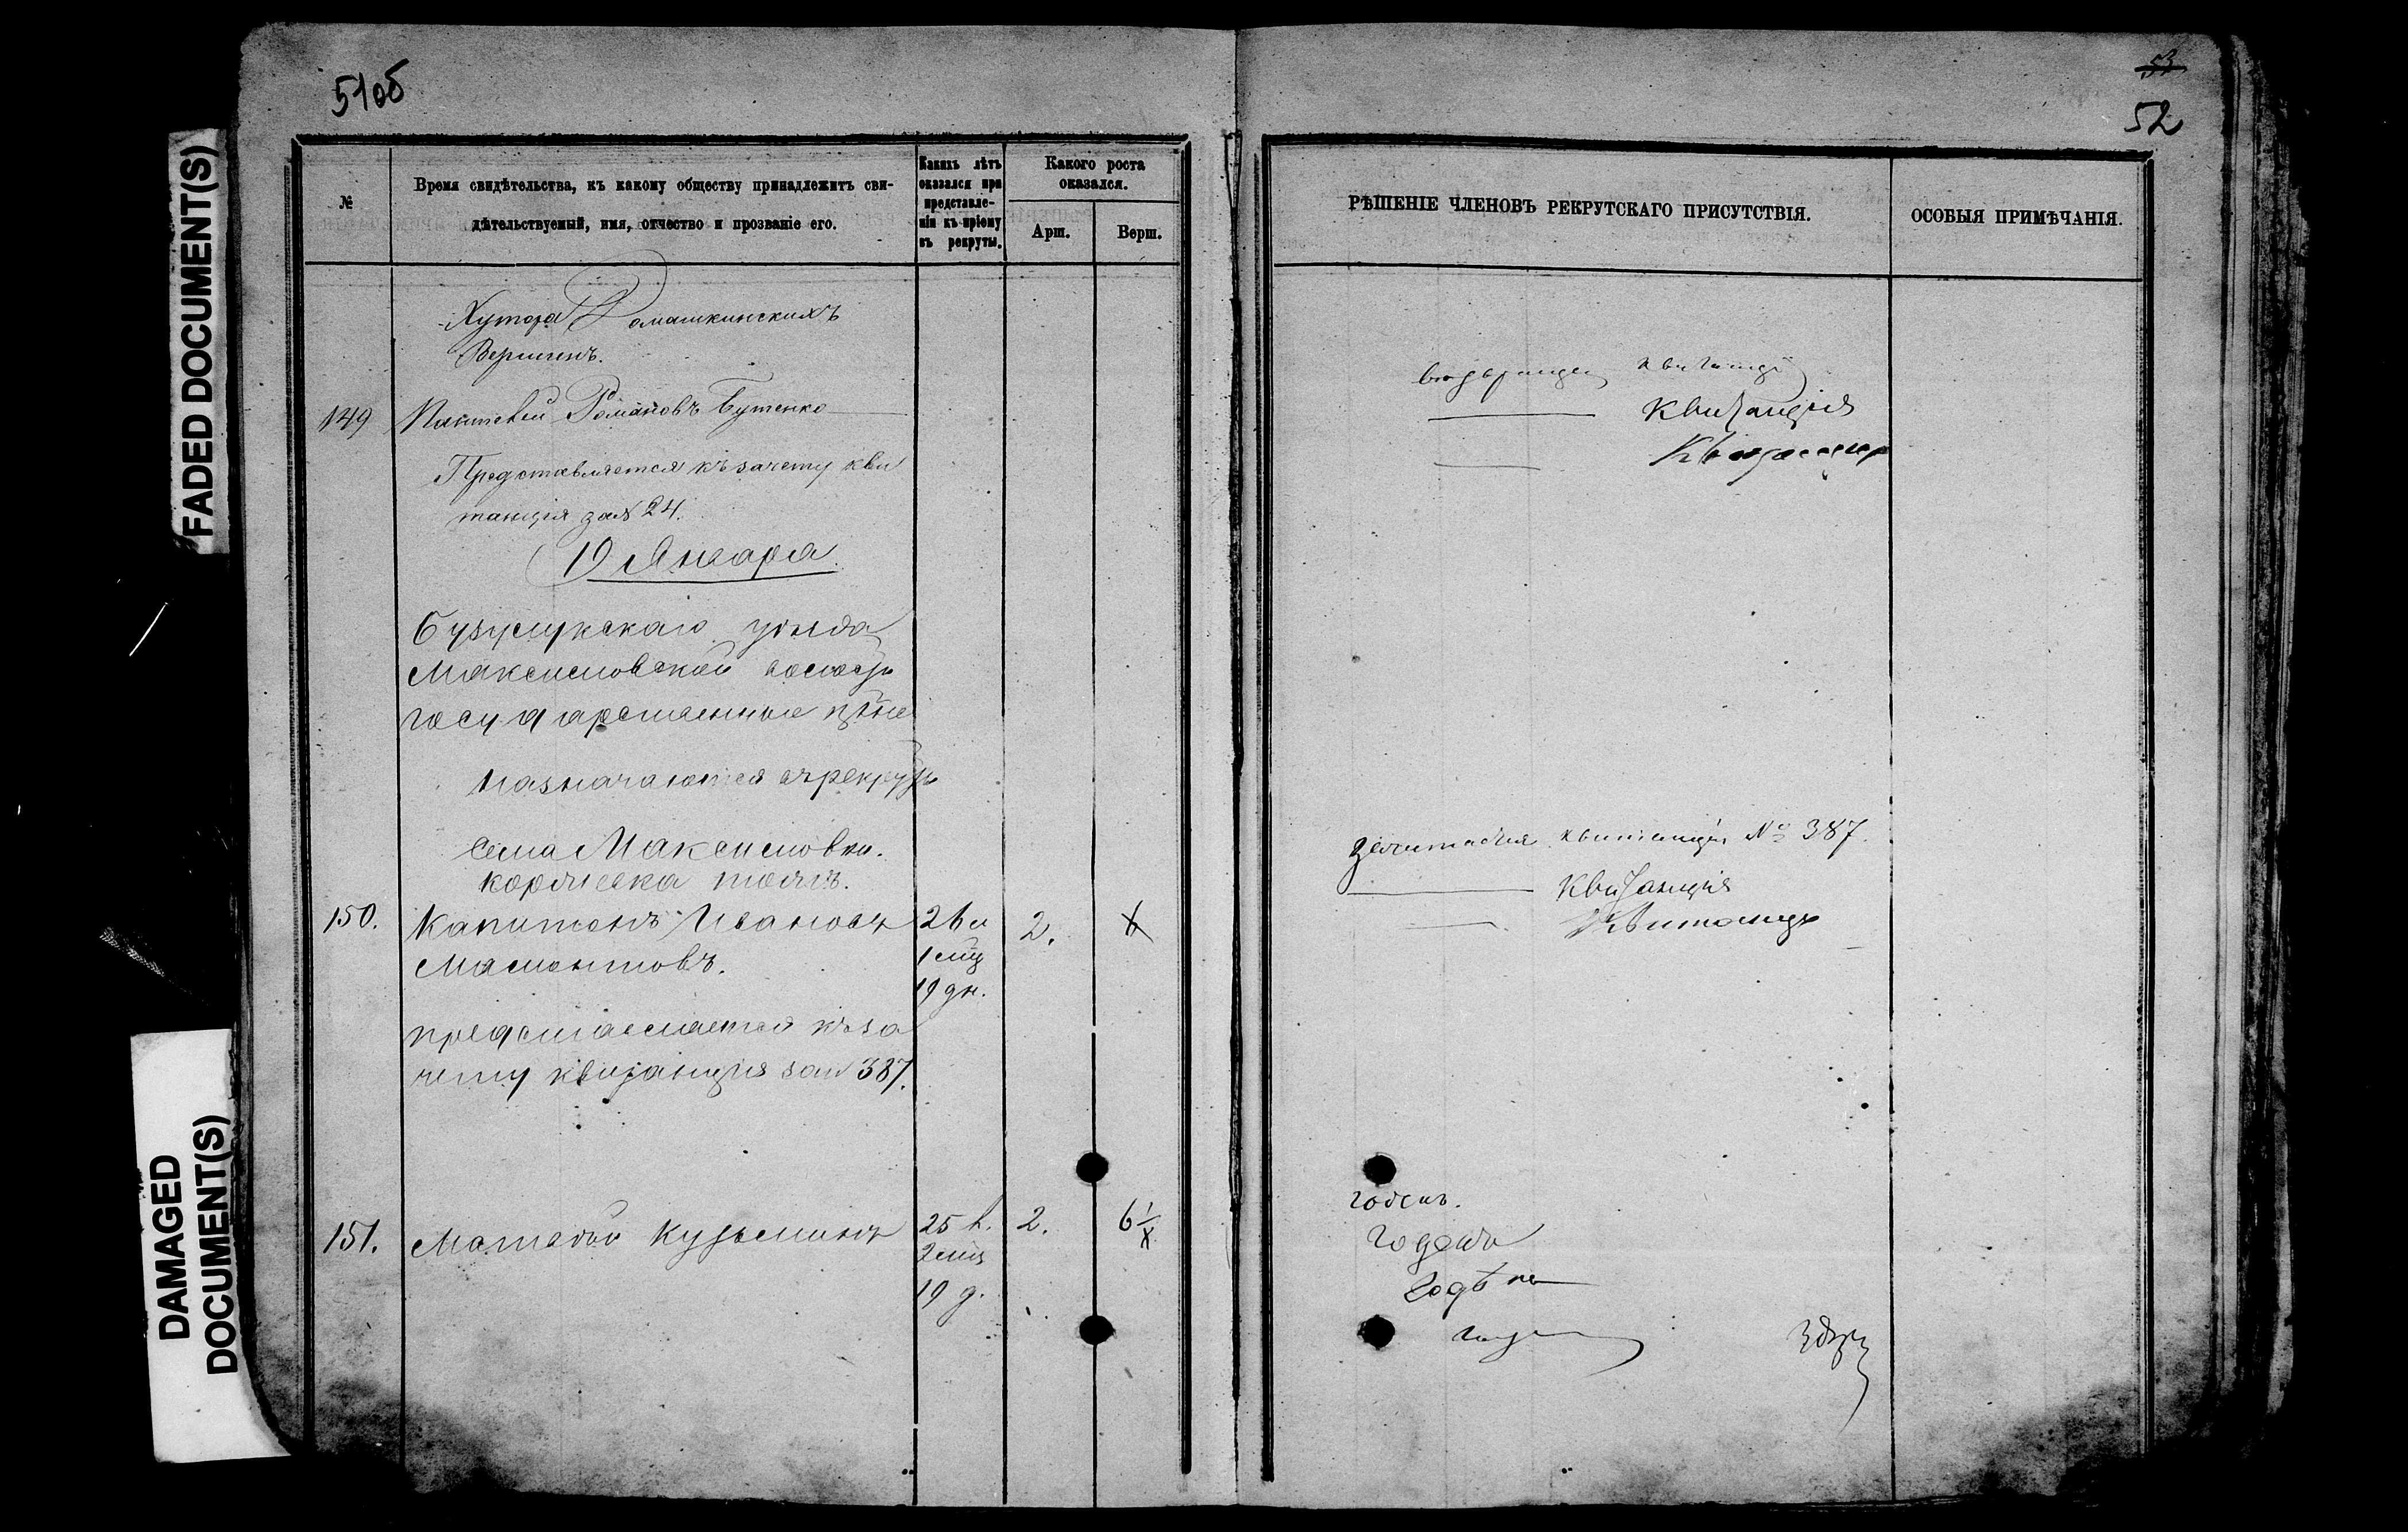 FADED DOCUMENT(S)
DAMAGED
DOCUMENT(S)
51об
№
Время свидѣтельства, къ какому обществу принадлежитъ сви-
дѣтельствуемый, имя, отчество и прозваніе его.
Какихъ лѣтъ
оказался при
представле-
ніи къ пріему
въ рекруты.
Какого роста
оказался.
Арш.
Верш.
Хутора Ромашкинскихъ
Вершинъ.
149 Пантелей Романовъ Бутенко
Представляется къ зачету кви
танція за № 24.
19 Января
Бузулукскаго уѣзда
Максимовской волости
государственные
назначаются въ рекруты
Села Максимовки.
150. Капитонъ Ивановъ 26 и 2. 6
Мамонтовъ. 1 мц
19 дн.
представляется къ за
чету квитанція за № 387.
151. Матвѣй Кузьминъ 25 л. 2. 6 1/
2 мц
19 д.
53
52
РѢШЕНІЕ ЧЛЕНОВЪ РЕКРУТСКАГО ПРИСУТСТВІЯ.
ОСОБЫЯ ПРИМѢЧАНІЯ.
квитанція
Квитанція
Зачитается квитанція № 387.
Квитанція
Квитанція
годенъ.
Годенъ
Годенъ